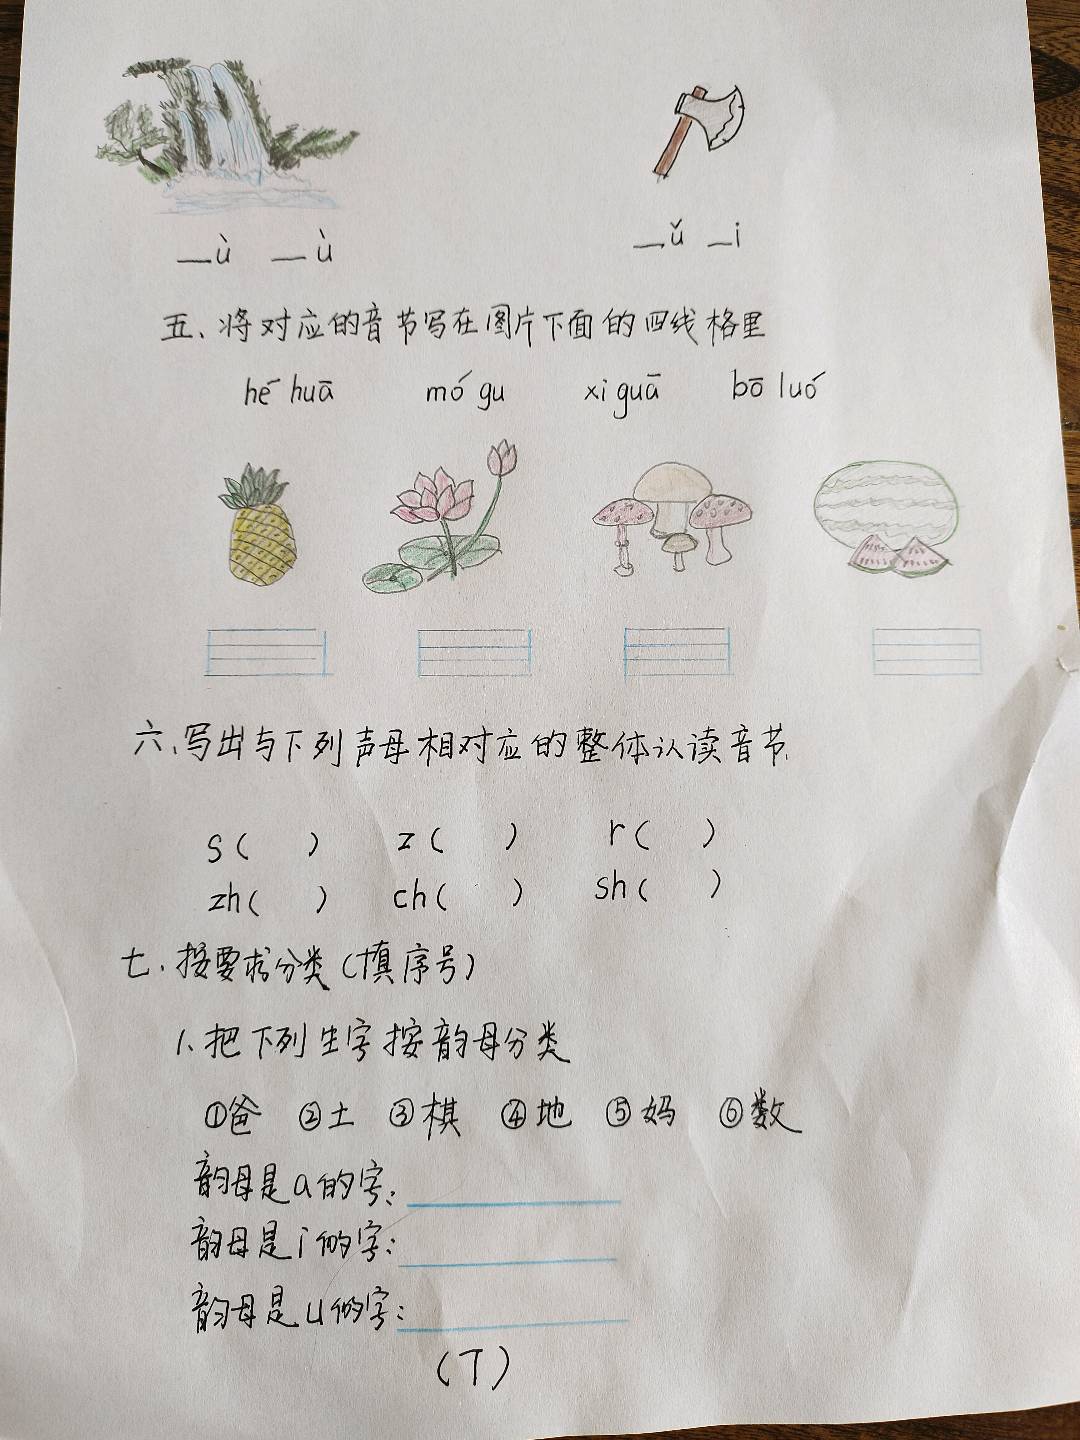 __ù __ù __ǔ __i
五、将对应的音节写在图片下面的四线格里
hé huā mó gu xi guā bō luó
六、写出与下列声母相对应的整体认读音节
s( ) z( ) r( )
zh( ) ch( ) sh( )
七、按要求分类(填序号)
1、把下列生字按韵母分类
①爸 ②土 ③棋 ④地 ⑤妈 ⑥数
韵母是a的字:
韵母是i的字:
韵母是u的字:
(T)